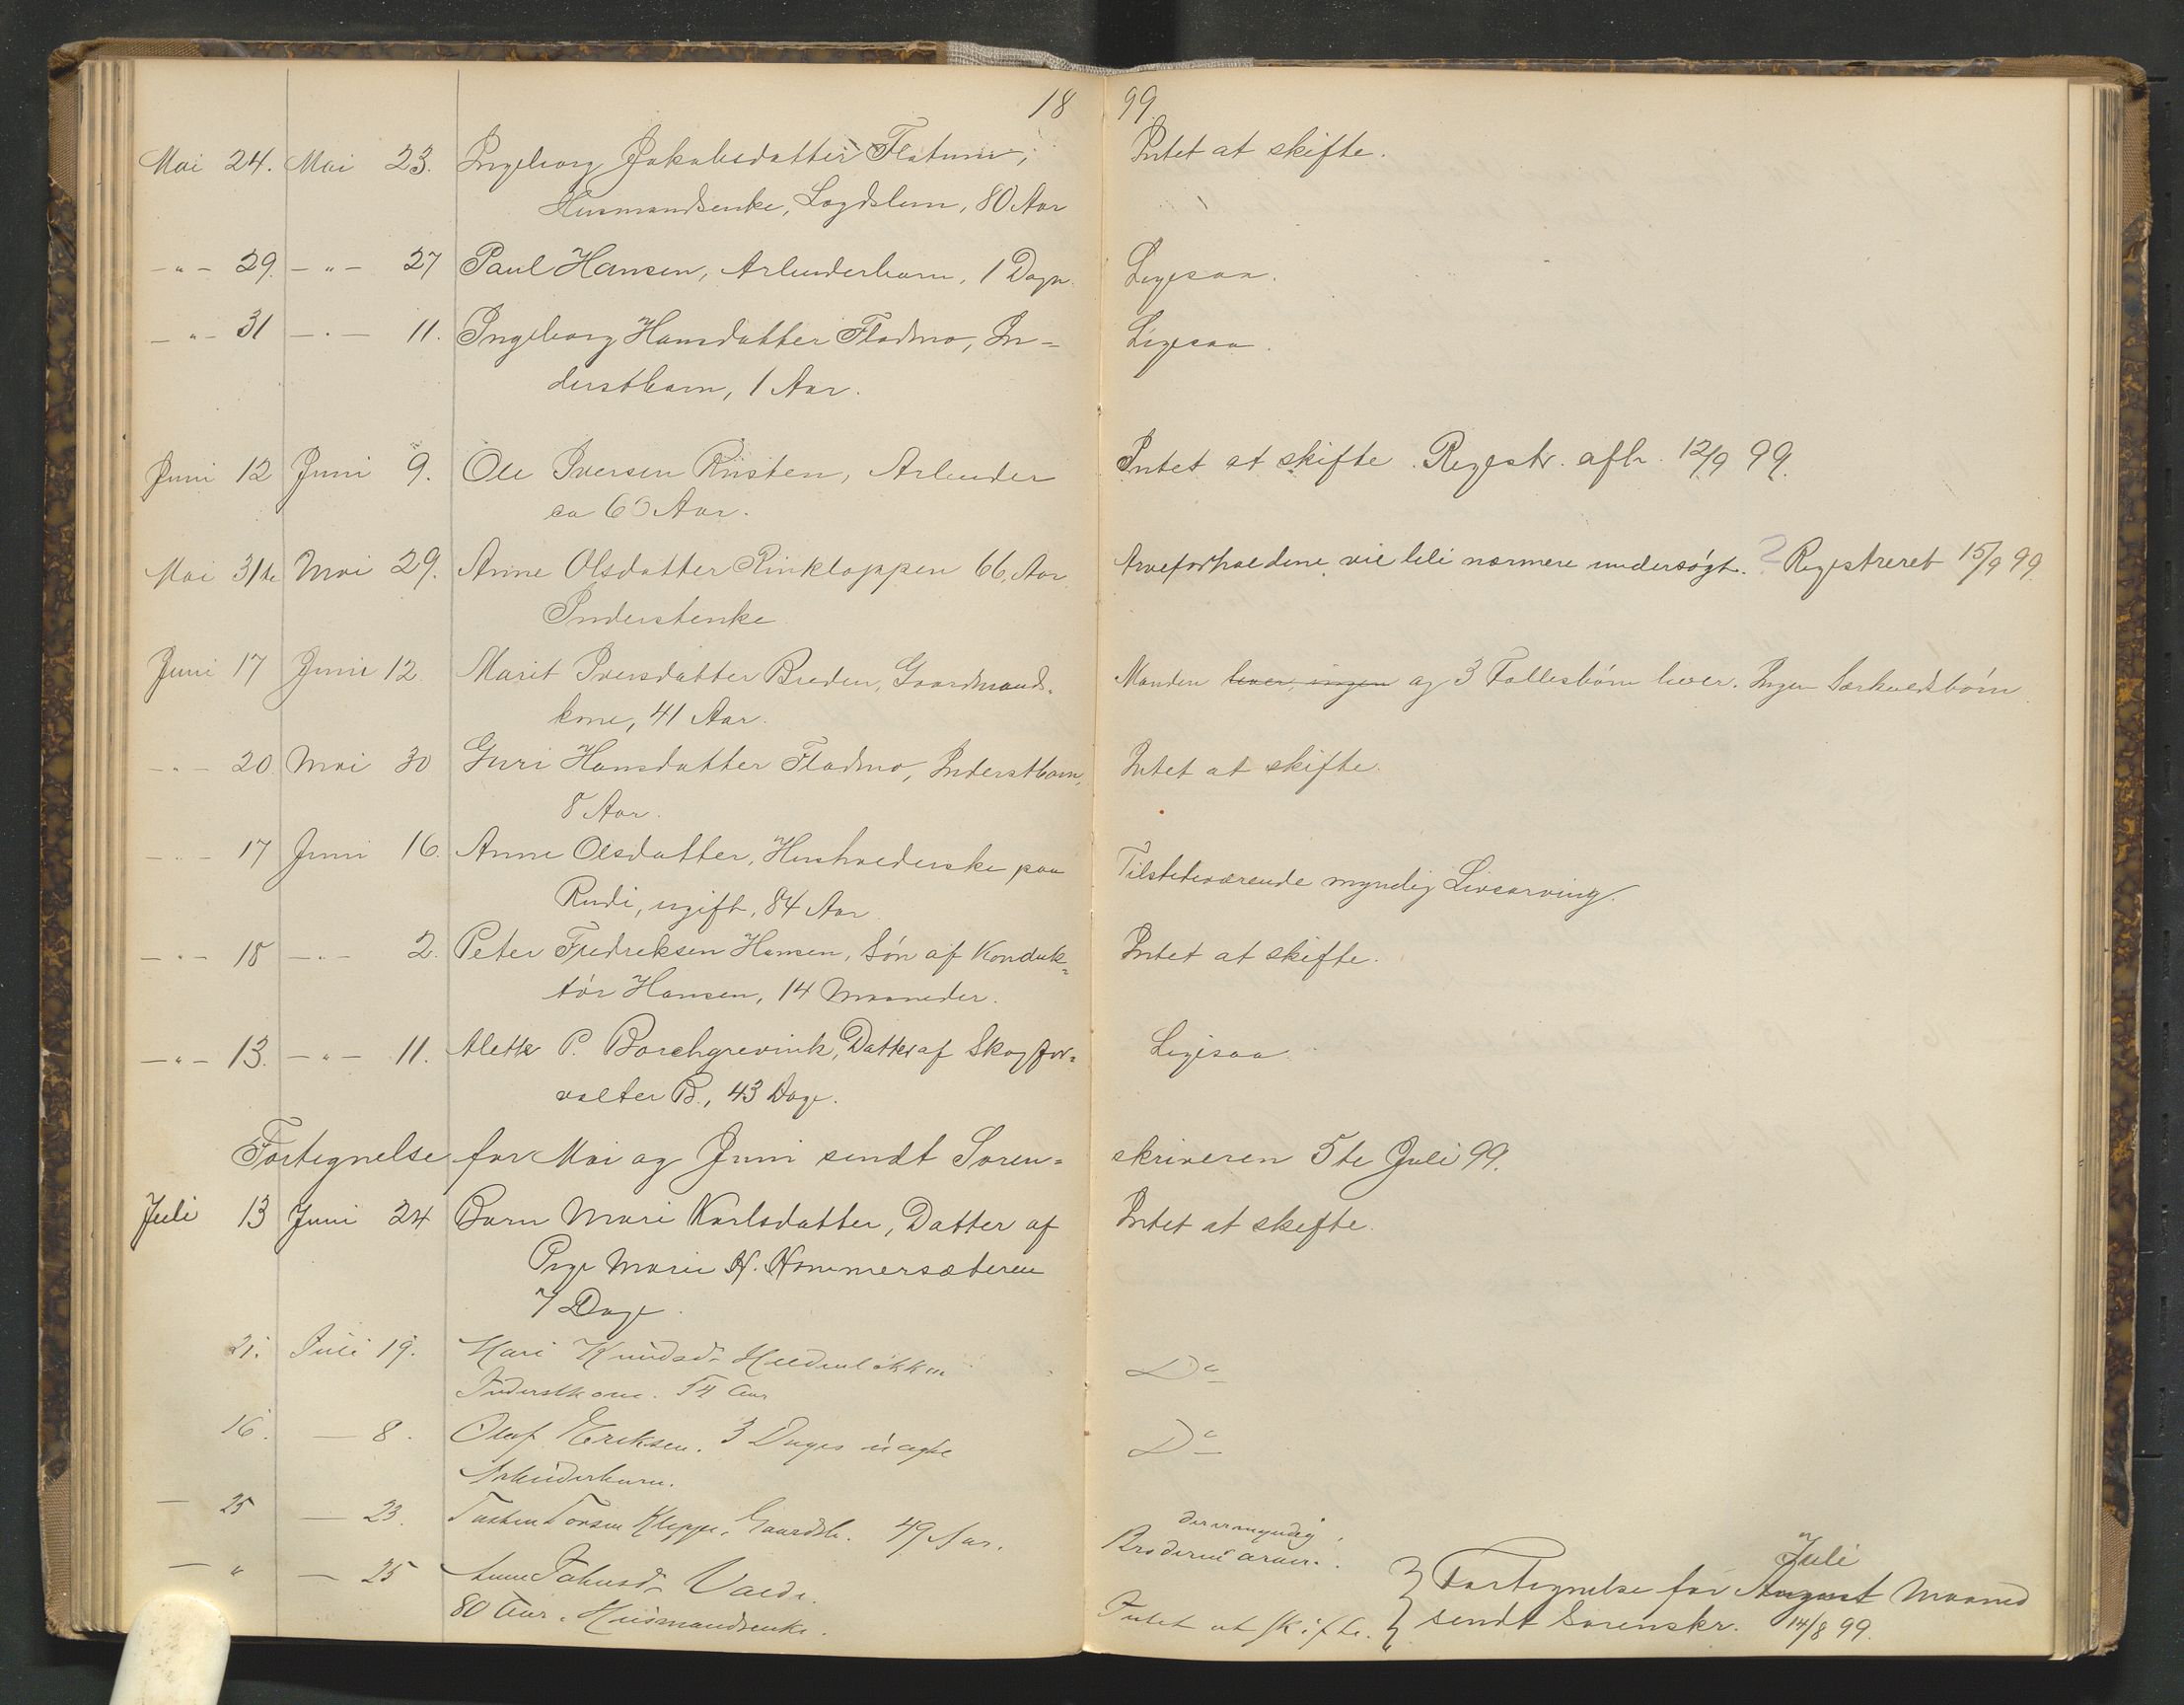 1899
Mai 24. Mai 23. Ingeborg Jakobsdatter Flatum, Intet at skifte.
Husmandsenke, Lagdslem, 80 Aar
-"- 29. -"- 27 Paul Hansen, Arbeiderbarn, 1 Døgn. Ligesaa.
-"- 31 -"- 11. Ingeborg Hansdatter Flodmo, In- Ligesaa.
derstbarn, 1 Aar.
Juni 12 Juni 9. Ole Iversen Riisten, Arbeider Intet at skifte. Registr. afh. 12/9 99.
ca 60 Aar.
Mai 31te Mai 29. Anne Olsdatter Rinkloppen 66 Aar Arveforholdene vil bli nærmere undersøgt. ? Registreret 15/9 99.
Inderstenke
Juni 17 Juni 12. Marit Iversdatter Breden, Gaardmands- Manden lever, ingen og 3 Fællesbørn lever. Ingen Særkuldsbørn
kone, 41 Aar.
-"- 20 Mai 30 Guri Hansdatter Flodmo, Inderstbarn, Intet at skifte.
8 Aar.
-"- 17 Juni 16. Anne Olsdatter, Husholderske paa Tilstedeværende myndig Livsarving.
Rudi, ugift, 84 Aar
-"- 18 -"- 2. Peter Fredriksen Hansen, Søn af Konduk- Intet at skifte.
tør Hansen, 14 Maaneder.
-"- 13. -"- 11. Alette P. Borchgrevink, Datter af Skogfor- Ligesaa.
valter B., 43 Dage.
Fortegnelse for Mai og Juni sendt Soren- skriveren 5te Juli 99.
Juli 13 Juni 24 Barn Mari Karlsdatter, Datter af Intet at skifte.
Pige Marie H. Hammersæteren
7 Dage.
21. Juli 19. Mari Knudsd. Inderstkone. 54 Aar Do
16. - 8. Olaf Eriksen. 3 Dages uægte Do
Arbeiderbarn.
- 25 - 23. Torsen Kleppe, Gaardb. 49 Aar. der er myndig
Broderen arver.
- " - 25 Anne
80 Aar. Husmandsenke. Intet at skifte.
Fortegnelse for August Juli Maaned
sendt Sorenskr. 14/8 99.